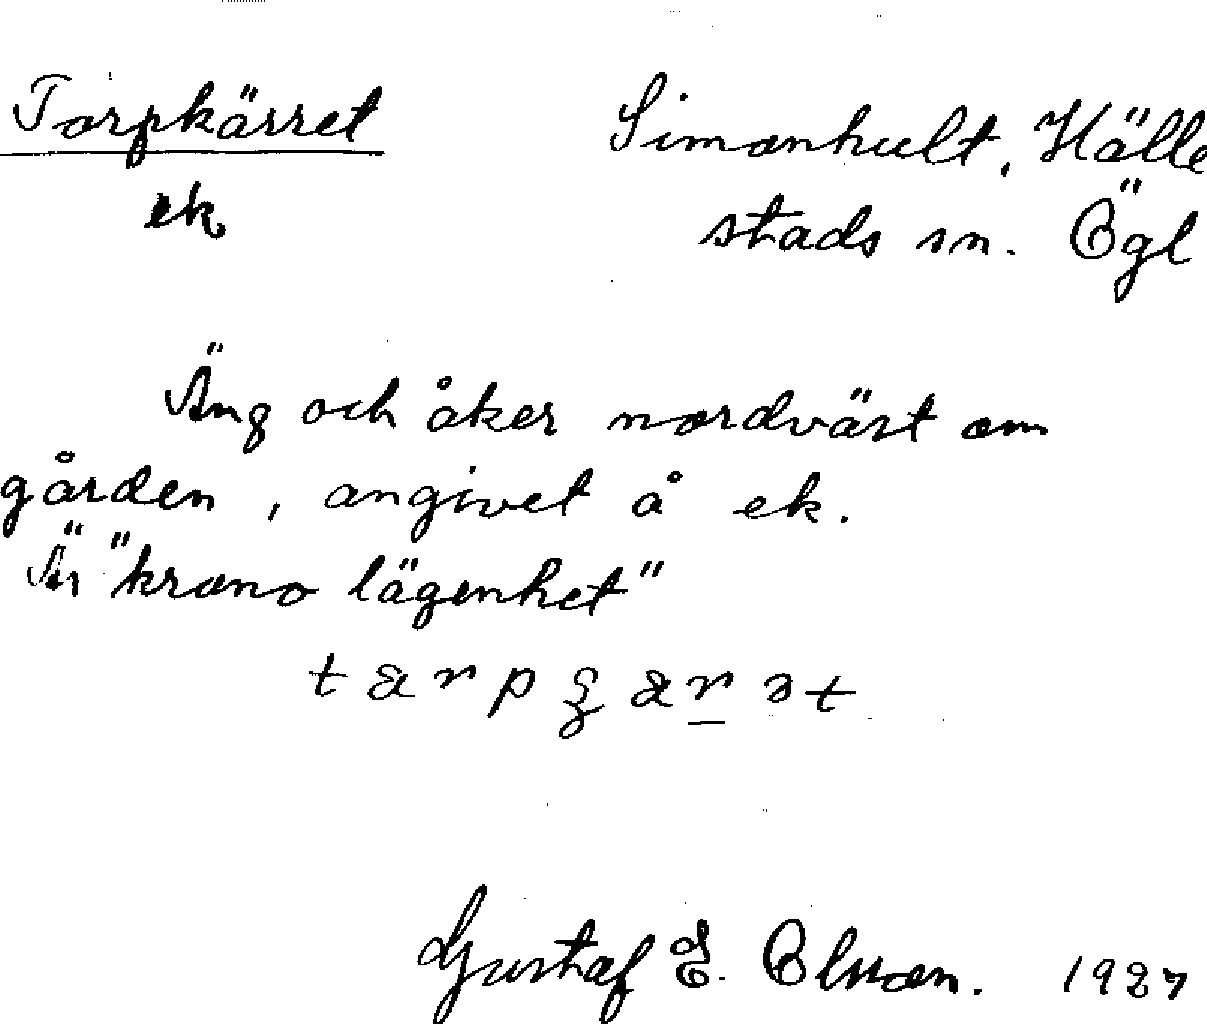 Torpkärret
ek
Simonhult, Hälle
stads sn. Ögl
Äng och åker nordväst om
gården, angivet å ek.
Är "krono lägenhet"
Gustaf E. Olsson. 1927